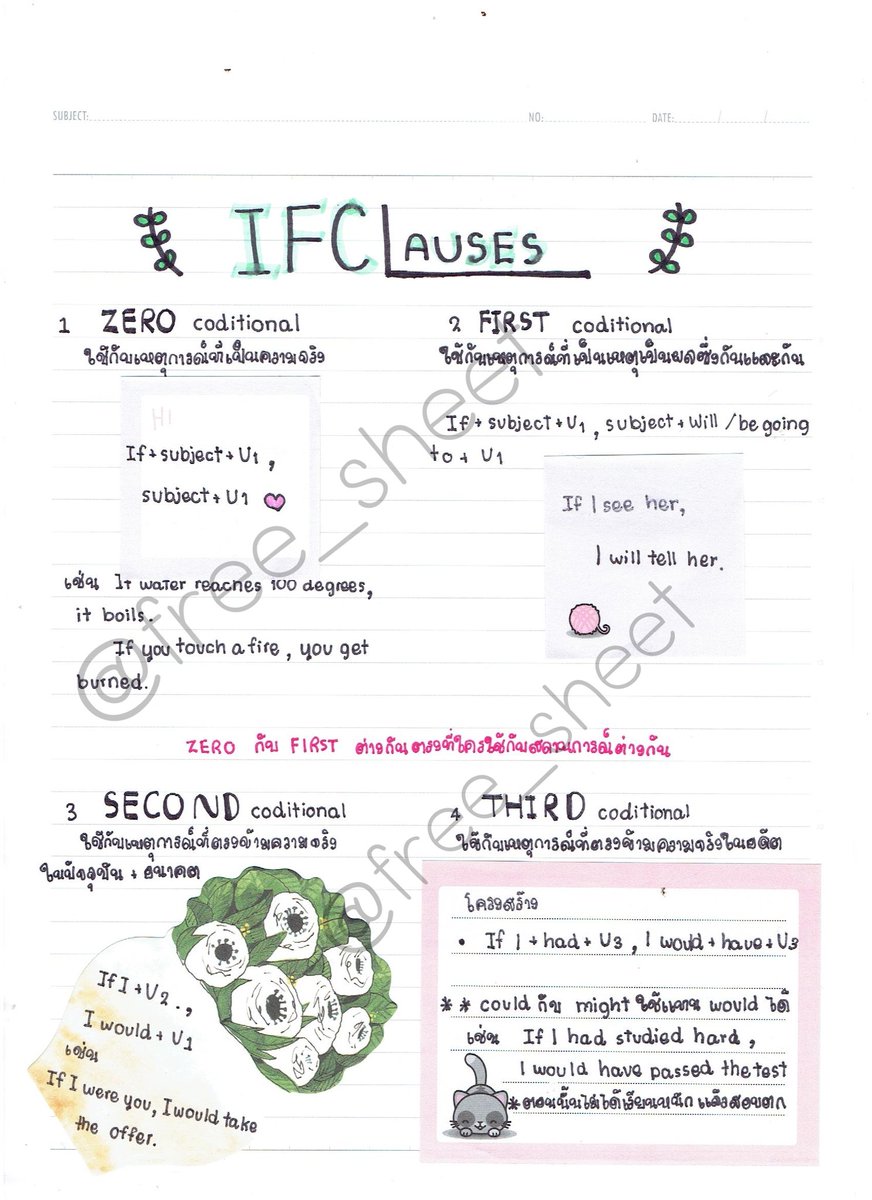 SUBJECT: NO: DATE: / /
IF CLAUSES
1 ZERO coditional
ใช้กับเหตุการณ์ที่เป็นความจริง
HI
If+subject+V1 ,
subject+V1
เช่น If water reaches 100 degrees,
it boils.
If you touch a fire, you get
burned.
2 FIRST coditional
ใช้กับเหตุการณ์ที่เป็นเหตุเป็นผลซึ่งกันและกัน
If+subject+V1 , subject+will /be going
to+ V1
If I see her,
I will tell her.
ZERO กับ FIRST ต่างกันตรงที่ใครใช้กับสถานการณ์ต่างกัน
3 SECOND coditional
ใช้กับเหตุการณ์ที่ตรงข้ามความจริง
ในปัจจุบัน + อนาคต
If I+V2 .,
I would+ V1
เช่น
If I were you, I would take
the offer.
4 THIRD coditional
ใช้กับเหตุการณ์ที่ตรงข้ามความจริงในอดีต
โครงสร้าง
• If I+had+V3 , I would+have+V3
** could กับ might ใช้แทน would ได้
เช่น If I had studied hard ,
I would have passed the test
*ตอนนั้นไม่ได้เรียนหนัก แล้วสอบตก
@free_sheet
@free_sheet